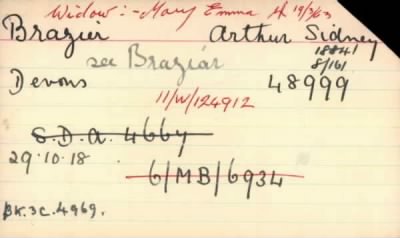 Widow:- Mary Emma H 19/3/63
Brazier Arthur Sidney
see Braziár 18841
8/161
Devons 48999
11/W/124912
S.D.A. 4664
29.10.18
6/MB/6934
BK.3C.4969.